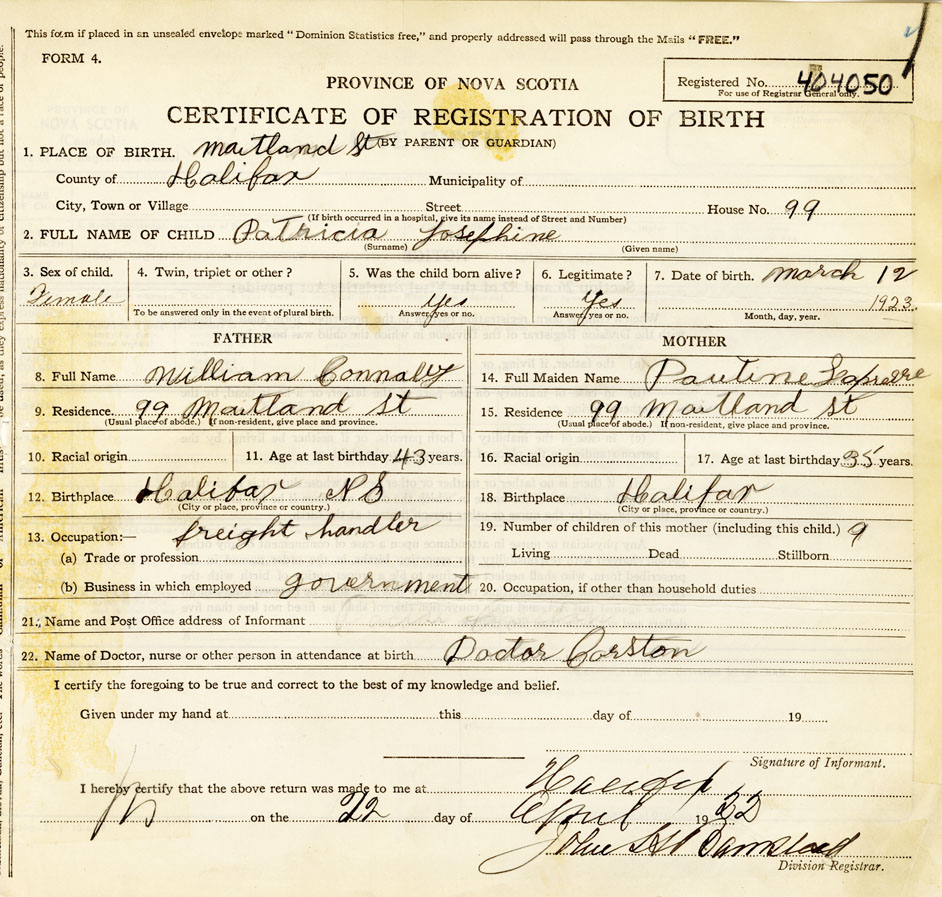 This form if placed in an unsealed envelope marked "Dominion Statistics free," and properly addressed will pass through the Mails "FREE."
FORM 4.
PROVINCE OF NOVA SCOTIA
Registered No. 404050
For use of Registrar General only.
CERTIFICATE OF REGISTRATION OF BIRTH
(BY PARENT OR GUARDIAN)
1. PLACE OF BIRTH. Maitland St
County of Halifax Municipality of
City, Town or Village Street House No. 99
(If birth occurred in a hospital, give its name instead of Street and Number)
2. FULL NAME OF CHILD Patricia Josephine
(Surname) (Given name)
3. Sex of child. 4. Twin, triplet or other? 5. Was the child born alive? 6. Legitimate? 7. Date of birth. March 12
Female yes Yes 1923
To be answered only in the event of plural birth. Answer, yes or no. Answer, yes or no. Month, day, year.
FATHER MOTHER
8. Full Name William Connolly 14. Full Maiden Name Pauline
9. Residence. 99 Maitland St 15. Residence 99 Maitland St
(Usual place of abode.) If non-resident, give place and province. (Usual place of abode.) If non-resident, give place and province.
10. Racial origin 11. Age at last birthday 43 years. 16. Racial origin 17. Age at last birthday 35 years.
12. Birthplace Halifax N S 18. Birthplace Halifax
(City or place, province or country.) (City or place, province or country.)
13. Occupation:— freight handler 19. Number of children of this mother (including this child.) 9
(a) Trade or profession Living Dead Stillborn
(b) Business in which employed government 20. Occupation, if other than household duties
21. Name and Post Office address of Informant
22. Name of Doctor, nurse or other person in attendance at birth Doctor Corston
I certify the foregoing to be true and correct to the best of my knowledge and belief.
Given under my hand at this day of 19
Signature of Informant.
I hereby certify that the above return was made to me at Halifax
on the 22 day of April 19
John
Division Registrar.